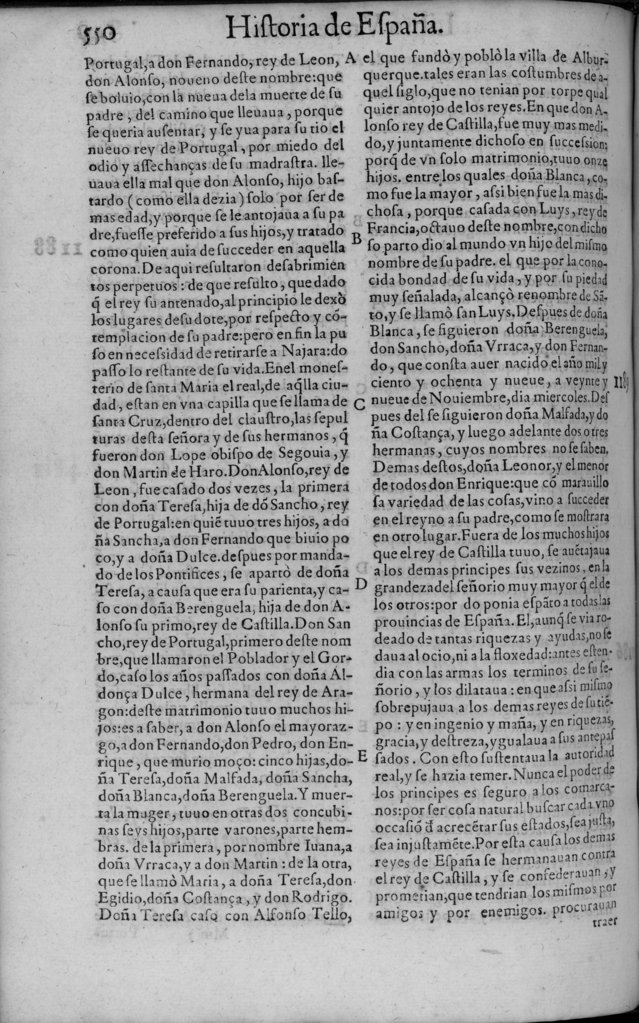 550 Historia de España.
Portugal, a don Fernando, rey de Leon,
don Alonso, noueno deste nombre: que
se boluio, con la nueua dela muerte de su
padre, del camino que lleuaua, porque
se queria ausentar, y se yua para su tio el
nueuo rey de Portugal, por miedo del
odio y assechanças de su madrastra. lle-
uaua ella mal que don Alonso, hijo bas-
tardo (como ella dezia) solo por ser de
mas edad, y porque se le antojaua a su pa
dre, fuesse preferido a sus hijos, y tratado
como quien auia de succeder en aquella
corona. De aqui resultaron desabrimien
tos perpetuos: de que resulto, que dado
q̃ el rey su antenado, al principio le dexò
los lugares de su dote, por respecto y cõ-
templacion de su padre: pero en fin la pu
so en necessidad de retirarse a Najara: do
passo lo restante de su vida. En el mones-
terio de santa Maria el real, de aq̃lla ciu-
dad, estan en vna capilla que se llama de
santa Cruz, dentro del claustro, las sepul
turas desta señora y de sus hermanos, q̃
fueron don Lope obispo de Segouia, y
don Martin de Haro. Don Alonso, rey de
Leon, fue casado dos vezes, la primera
con doña Teresa, hija de dõ Sancho, rey
de Portugal: en quiẽ tuuo tres hijos, a do
ña Sancha, a don Fernando que biuio po
co, y a doña Dulce. despues por manda-
do de los Pontifices, se apartò de doña
Teresa, a causa que era su parienta, y ca-
so con doña Berenguela, hija de don A-
lonso su primo, rey de Castilla. Don San
cho, rey de Portugal, primero deste nom
bre, que llamaron el Poblador y el Gor-
do, caso los años passados con doña Al-
donça Dulce, hermana del rey de Ara-
gon: deste matrimonio tuuo muchos hi-
jos: es a saber, a don Alonso el mayoraz-
go, a don Fernando, don Pedro, don En-
rique, que murio moço: cinco hijas, do-
ña Teresa, doña Malfada, doña Sancha,
doña Blanca, doña Berenguela. Y muer-
ta la muger, tuuo en otras dos concubi-
nas seys hijos, parte varones, parte hem-
bras. de la primera, por nombre Iuana, a
doña Vrraca, y a don Martin: de la otra,
que se llamò Maria, a doña Teresa, don
Egidio, doña Costança, y don Rodrigo.
Doña Teresa caso con Alfonso Tello,
A
B
C
D
E
el que fundò y poblò la villa de Albur-
querque. tales eran las costumbres de a-
quel siglo, que no tenian por torpe qual
quier antojo de los reyes. En que don A-
lonso rey de Castilla, fue muy mas medi-
do, y juntamente dichoso en succession:
porq̃ de vn solo matrimonio, tuuo onze
hijos. entre los quales doña Blanca, co-
mo fue la mayor, assi bien fue la mas di-
chosa, porque casada con Luys, rey de
Francia, octauo deste nombre, con dicho
so parto dio al mundo vn hijo del mismo
nombre de su padre. el que por la cono-
cida bondad de su vida, y por su piedad
muy señalada, alcançò renombre de Sã-
to, y se llamò san Luys. Despues de doña
Blanca, se siguieron doña Berenguela,
don Sancho, doña Vrraca, y don Fernan-
do, que consta auer nacido el año mil y
ciento y ochenta y nueue, a veynte y
nueue de Nouiembre, dia miercoles. Des
pues del se siguieron doña Malfada, y do
ña Costança, y luego adelante dos o tres
hermanas, cuyos nombres no se saben.
Demas destos, doña Leonor, y el menor
de todos don Enrique: que cõ marauillo
sa variedad de las cosas, vino a succeder
en el reyno a su padre, como se mostrara
en otro lugar. Fuera de los muchos hijos
que el rey de Castilla tuuo, se auẽtajaua
a los demas principes sus vezinos, en la
grandeza del señorio muy mayor q̃ el de
los otros: por do ponia espãto a todas las
prouincias de España. El, aunq̃ se via ro-
deado de tantas riquezas y ayudas, no se
daua al ocio, ni a la floxedad: antes esten-
dia con las armas los terminos de su se-
ñorio, y los dilataua: en que assi mismo
sobrepujaua a los demas reyes de su tiẽ-
po: y en ingenio y maña, y en riquezas,
gracia, y destreza, ygualaua a sus antepas
sados. Con esto sustentaua la autoridad
real, y se hazia temer. Nunca el poder de
los principes es seguro a los comarca-
nos: por ser cosa natural buscar cada vno
occasiõ d̃ acrecẽtar sus estados, sea justa,
sea injustamẽte. Por esta causa los demas
reyes de España se hermanauan contra
el rey de Castilla, y se confederauan, y
prometian, que tendrian los mismos por
amigos y por enemigos. procurauan
traer